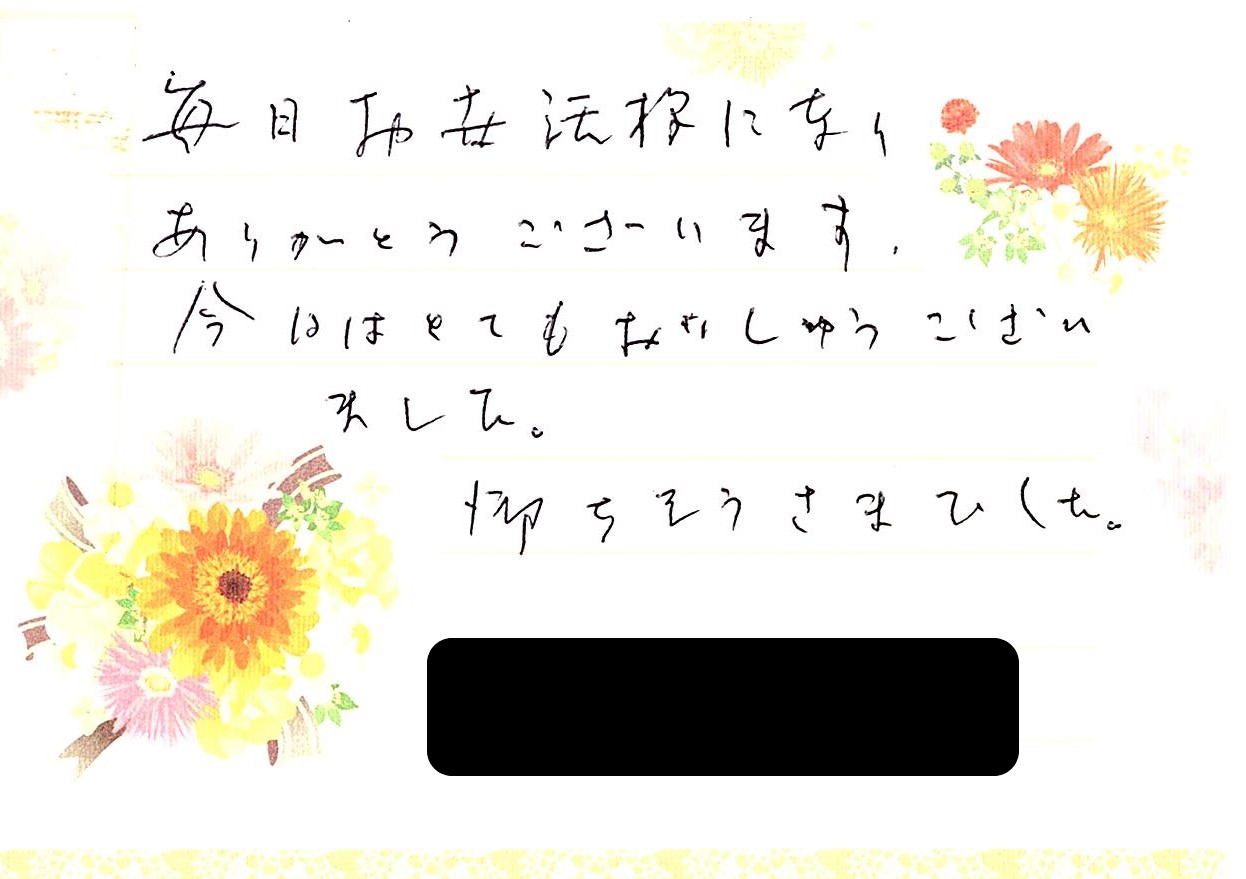 毎日お世話様になり
ありがとうございます.
今日はとてもおいしゅうござい
ました。
御ちそうさまでした。